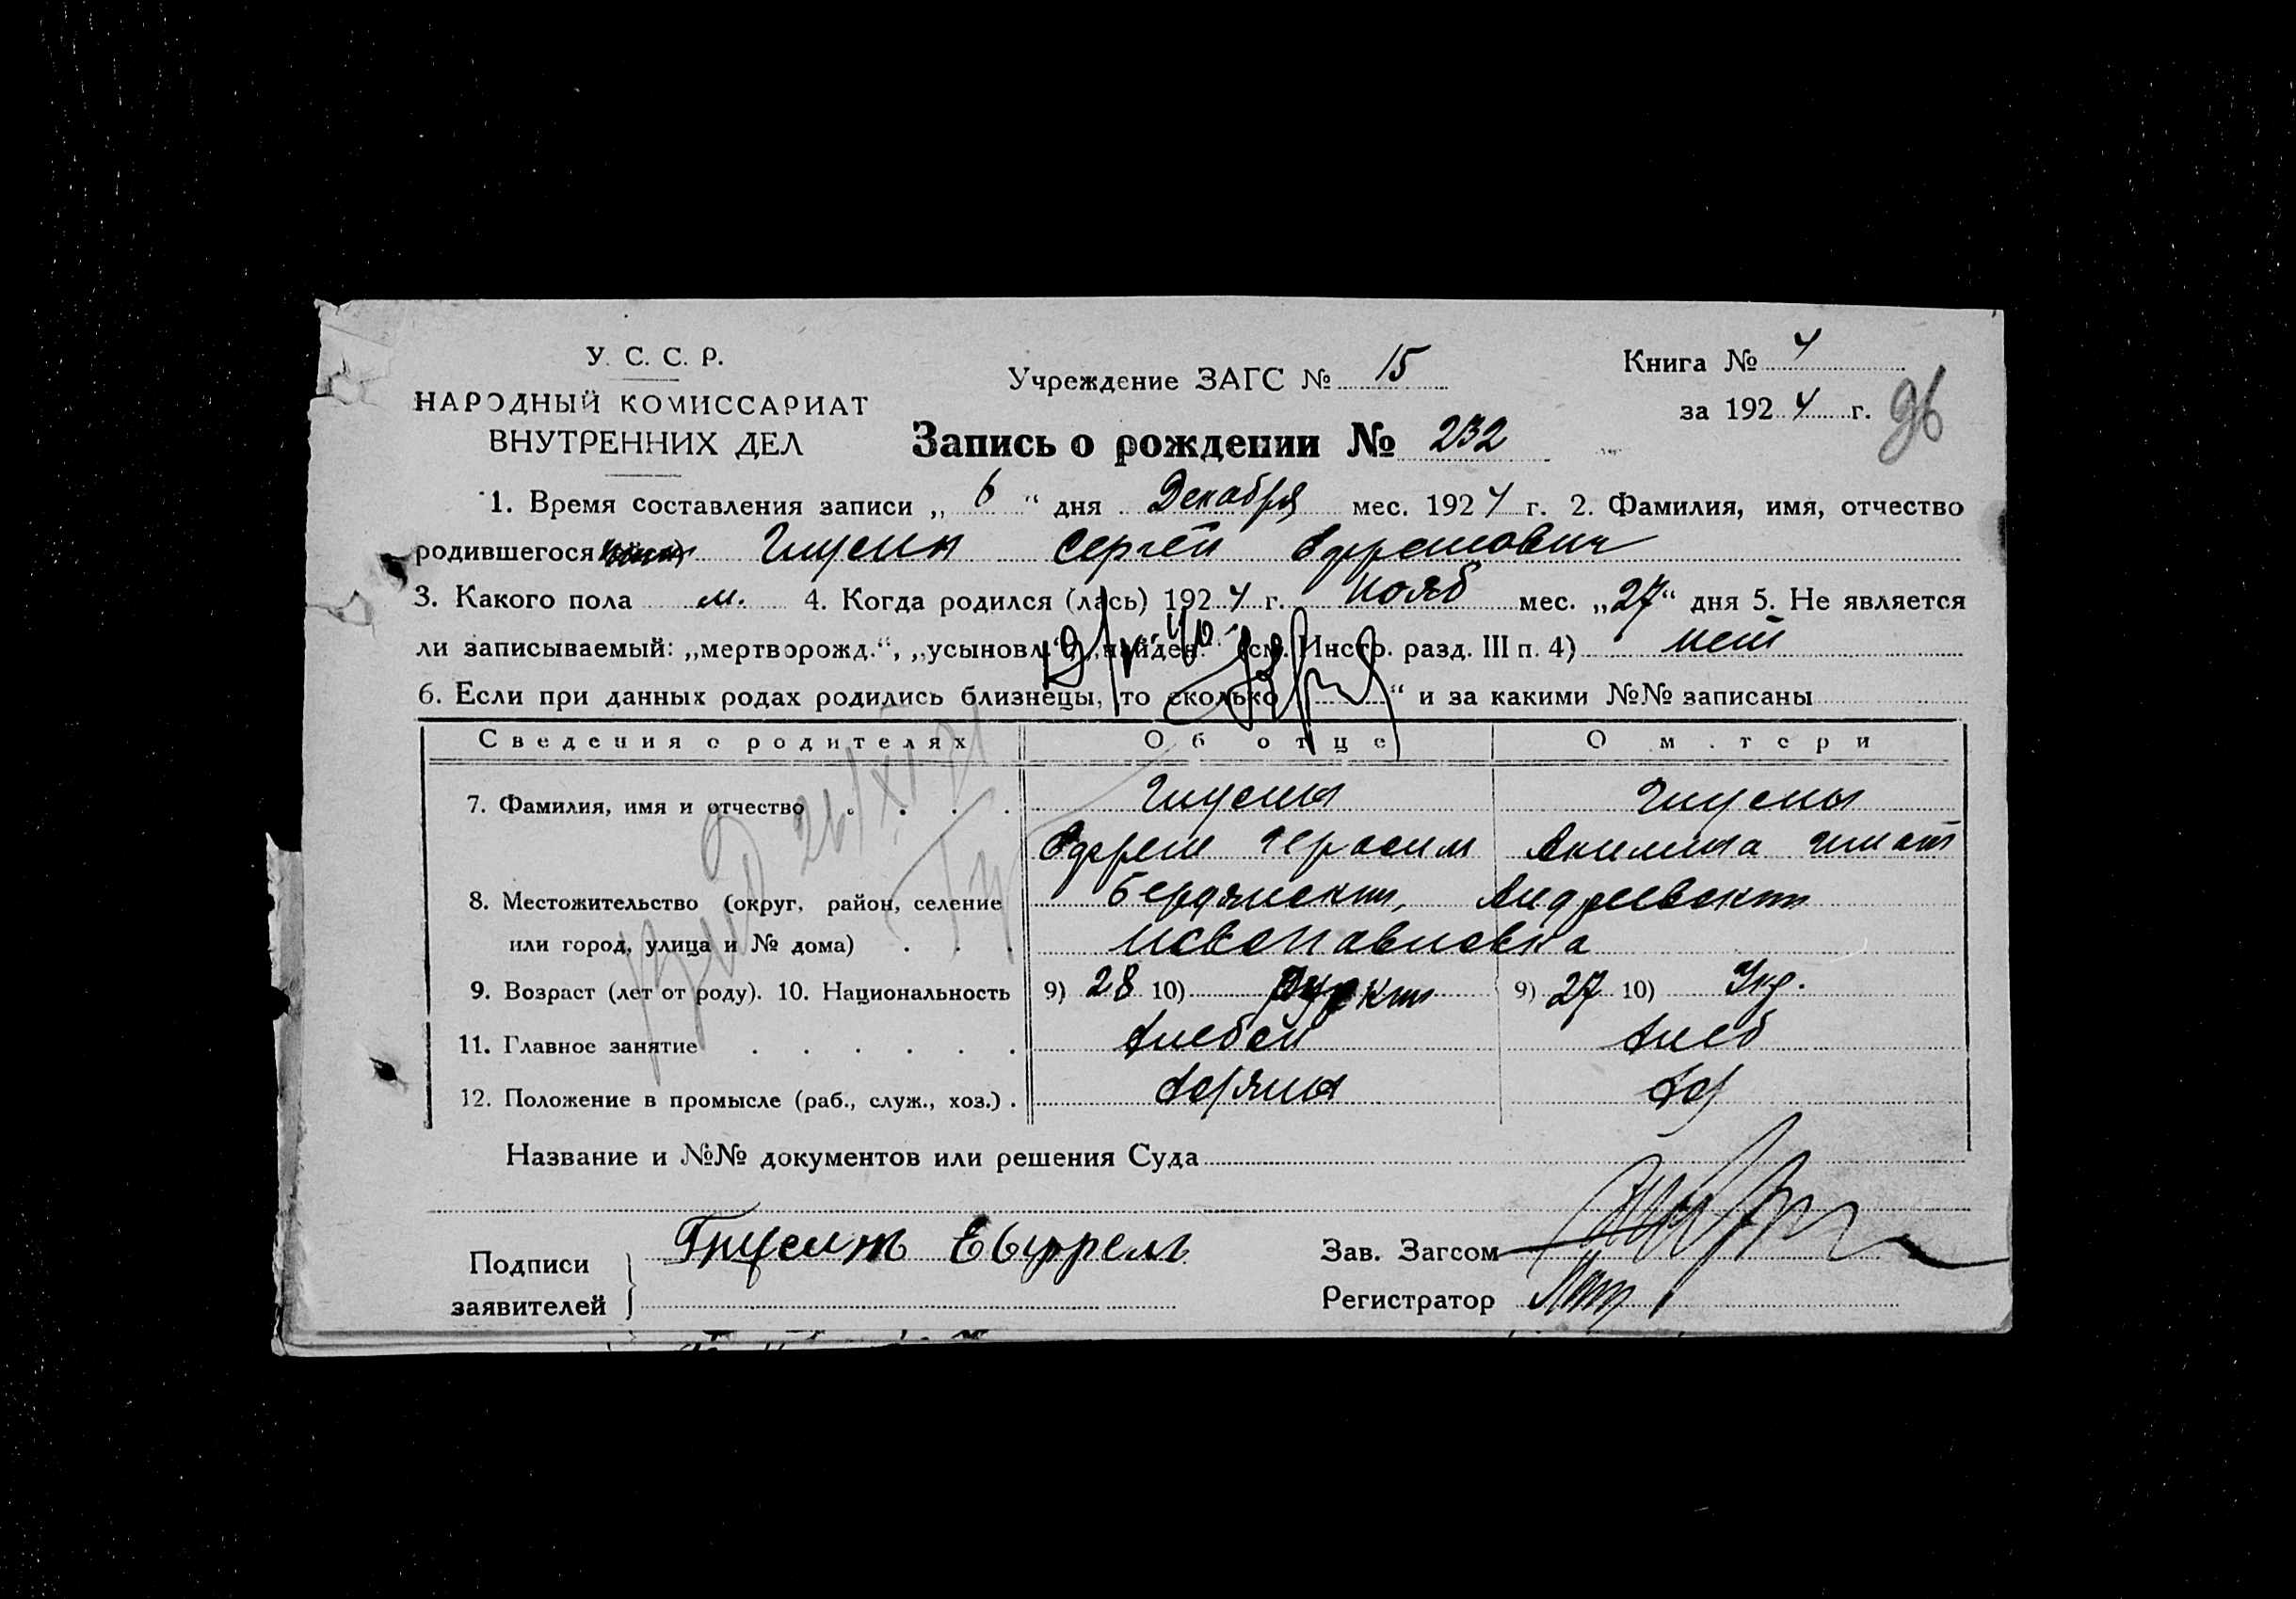 У. С. С. Р.
НАРОДНЫЙ КОМИССАРИАТ
ВНУТРЕННИХ ДЕЛ
Учреждение ЗАГС № 15
Книга № 4
за 1924 г.
96
Запись о рождении № 232
1. Время составления записи „ 6 “ дня Декабря мес. 1924 г. 2. Фамилия, имя, отчество
родившегося Сергей
3. Какого пола м. 4. Когда родился (лась) 1924 г. нояб мес. „27“ дня 5. Не является
ли записываемый: „мертворожд.“, „усыновл.“, „найден“ (см. Инстр. разд. III п. 4) нет
6. Если при данных родах родились близнецы, то сколько “ и за какими №№ записаны
Сведения о родителях Об отце О м.тери
7. Фамилия, имя и отчество
Герасим Акилина
8. Местожительство (округ, район, селение Бердянский, Андреевский
или город, улица и № дома) Новопавловка
9. Возраст (лет от роду). 10. Национальность 9) 28 10) 9) 27 10) Укр.
11. Главное занятие Хлебоп Хлеб
12. Положение в промысле (раб., служ., хоз.) Хозяин Хоз
Название и №№ документов или решения Суда
Подписи
заявителей
Зав. Загсом
Регистратор